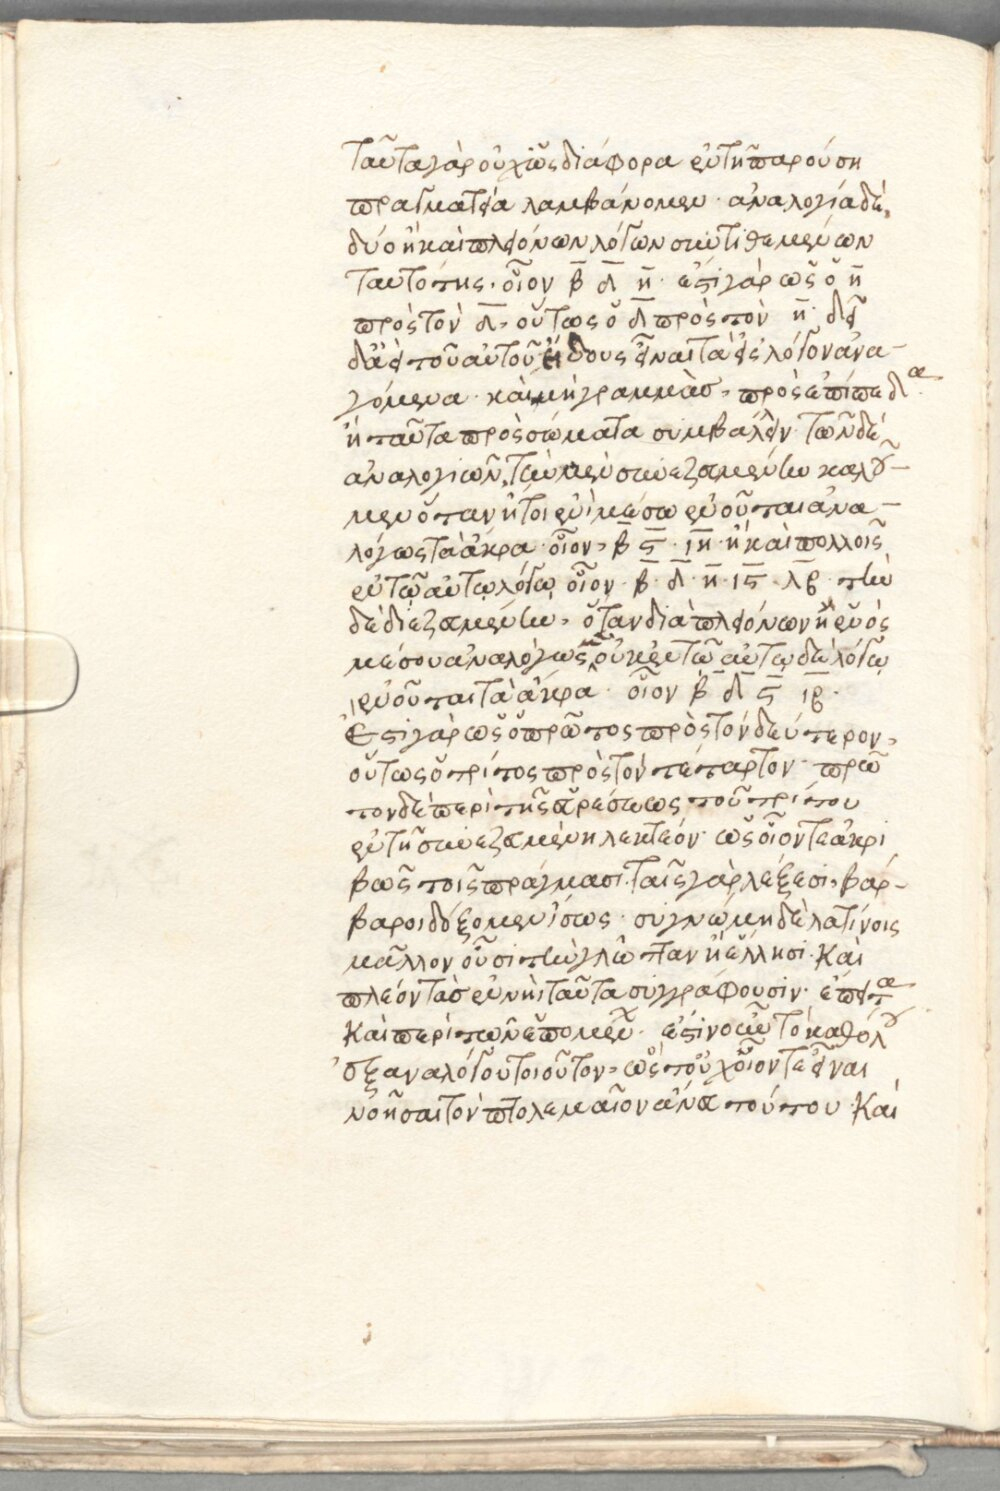 ταῦτα γὰρ οὐχ ὡς διάφορα ἐν τῇ παρούσῃ
πραγματείᾳ λαμβάνομεν · ἀναλογία δὲ,
δύο ἢ καὶ πλειόνων λόγων συντιθεμένων
ταυτότης · οἷον β̅ δ̅ η̅ · ἐστὶ γὰρ ὡς ὁ η̅
πρὸς τὸν δ̅, οὕτως ὁ δ̅ πρὸς τὸν η̅ · δεῖ
δ' ἀεὶ τοῦ αὐτοῦ εἴδους εἶναι τὰ εἰς λόγον ἀνα-
γόμενα · καὶ μὴ γραμμὰς, πρὸς ἐπίπεδα
ἢ ταῦτα πρὸς σώματα συμβάλλειν · τῶν δὲ
ἀναλογιῶν, τὴν μὲν συνεζευγμένην καλοῦ-
μεν ὅταν ἤτοι ἑνὶ μέσῳ ἑνοῦται ἀνα-
λόγως τὰ ἄκρα · οἷον, β̅ ς̅ · ιη̅ · ἢ καὶ πολλοῖς
ἐν τῷ αὐτῷ λόγῳ οἷον · β̅ · δ̅ · η̅ · ις̅ · λβ̅ · τὴν
δὲ διεζευγμένην, ὅταν διὰ πλειόνων ἢ ἑνὸς
μέσου ἀναλόγως, οὐκ ἐν τῷ αὐτῷ δὲ λόγῳ
ἑνοῦται τὰ ἄκρα · οἷον β̅ δ̅ ς̅ ιβ̅ ·
Ἐστὶ γὰρ ὡς ὁ πρῶτος πρὸς τὸν δεύτερον,
οὕτως ὁ τρίτος πρὸς τὸν τέταρτον · πρῶ
τον δὲ περὶ τῆς εὑρέσεως τοῦ τρίτου
ἐν τῇ συνεζευγμένῃ λεκτέον · ὡς οἷόν τε ἀκρι
βῶς τοῖς πράγμασι · ταῖς γὰρ λέξεσι, βάρ-
βαροι δόξομεν ἴσως · συγνώμη δὲ λατίνοις
μᾶλλον οὖσι τὴν γλῶτταν ἢ ἕλλησι · Καὶ
πλέον τὰς ταῦτα συγγράφουσιν · ἔπειτα
Καὶ περὶ τῶν ἑπομένων · ἐστὶν οὖν τὸ καθόλου
ἀναλόγου τοιοῦτον, ὡς οἷόν τε εἶναι
νοῆσαι τὸν πτολεμαῖον ἄνευ τούτου · Καὶ